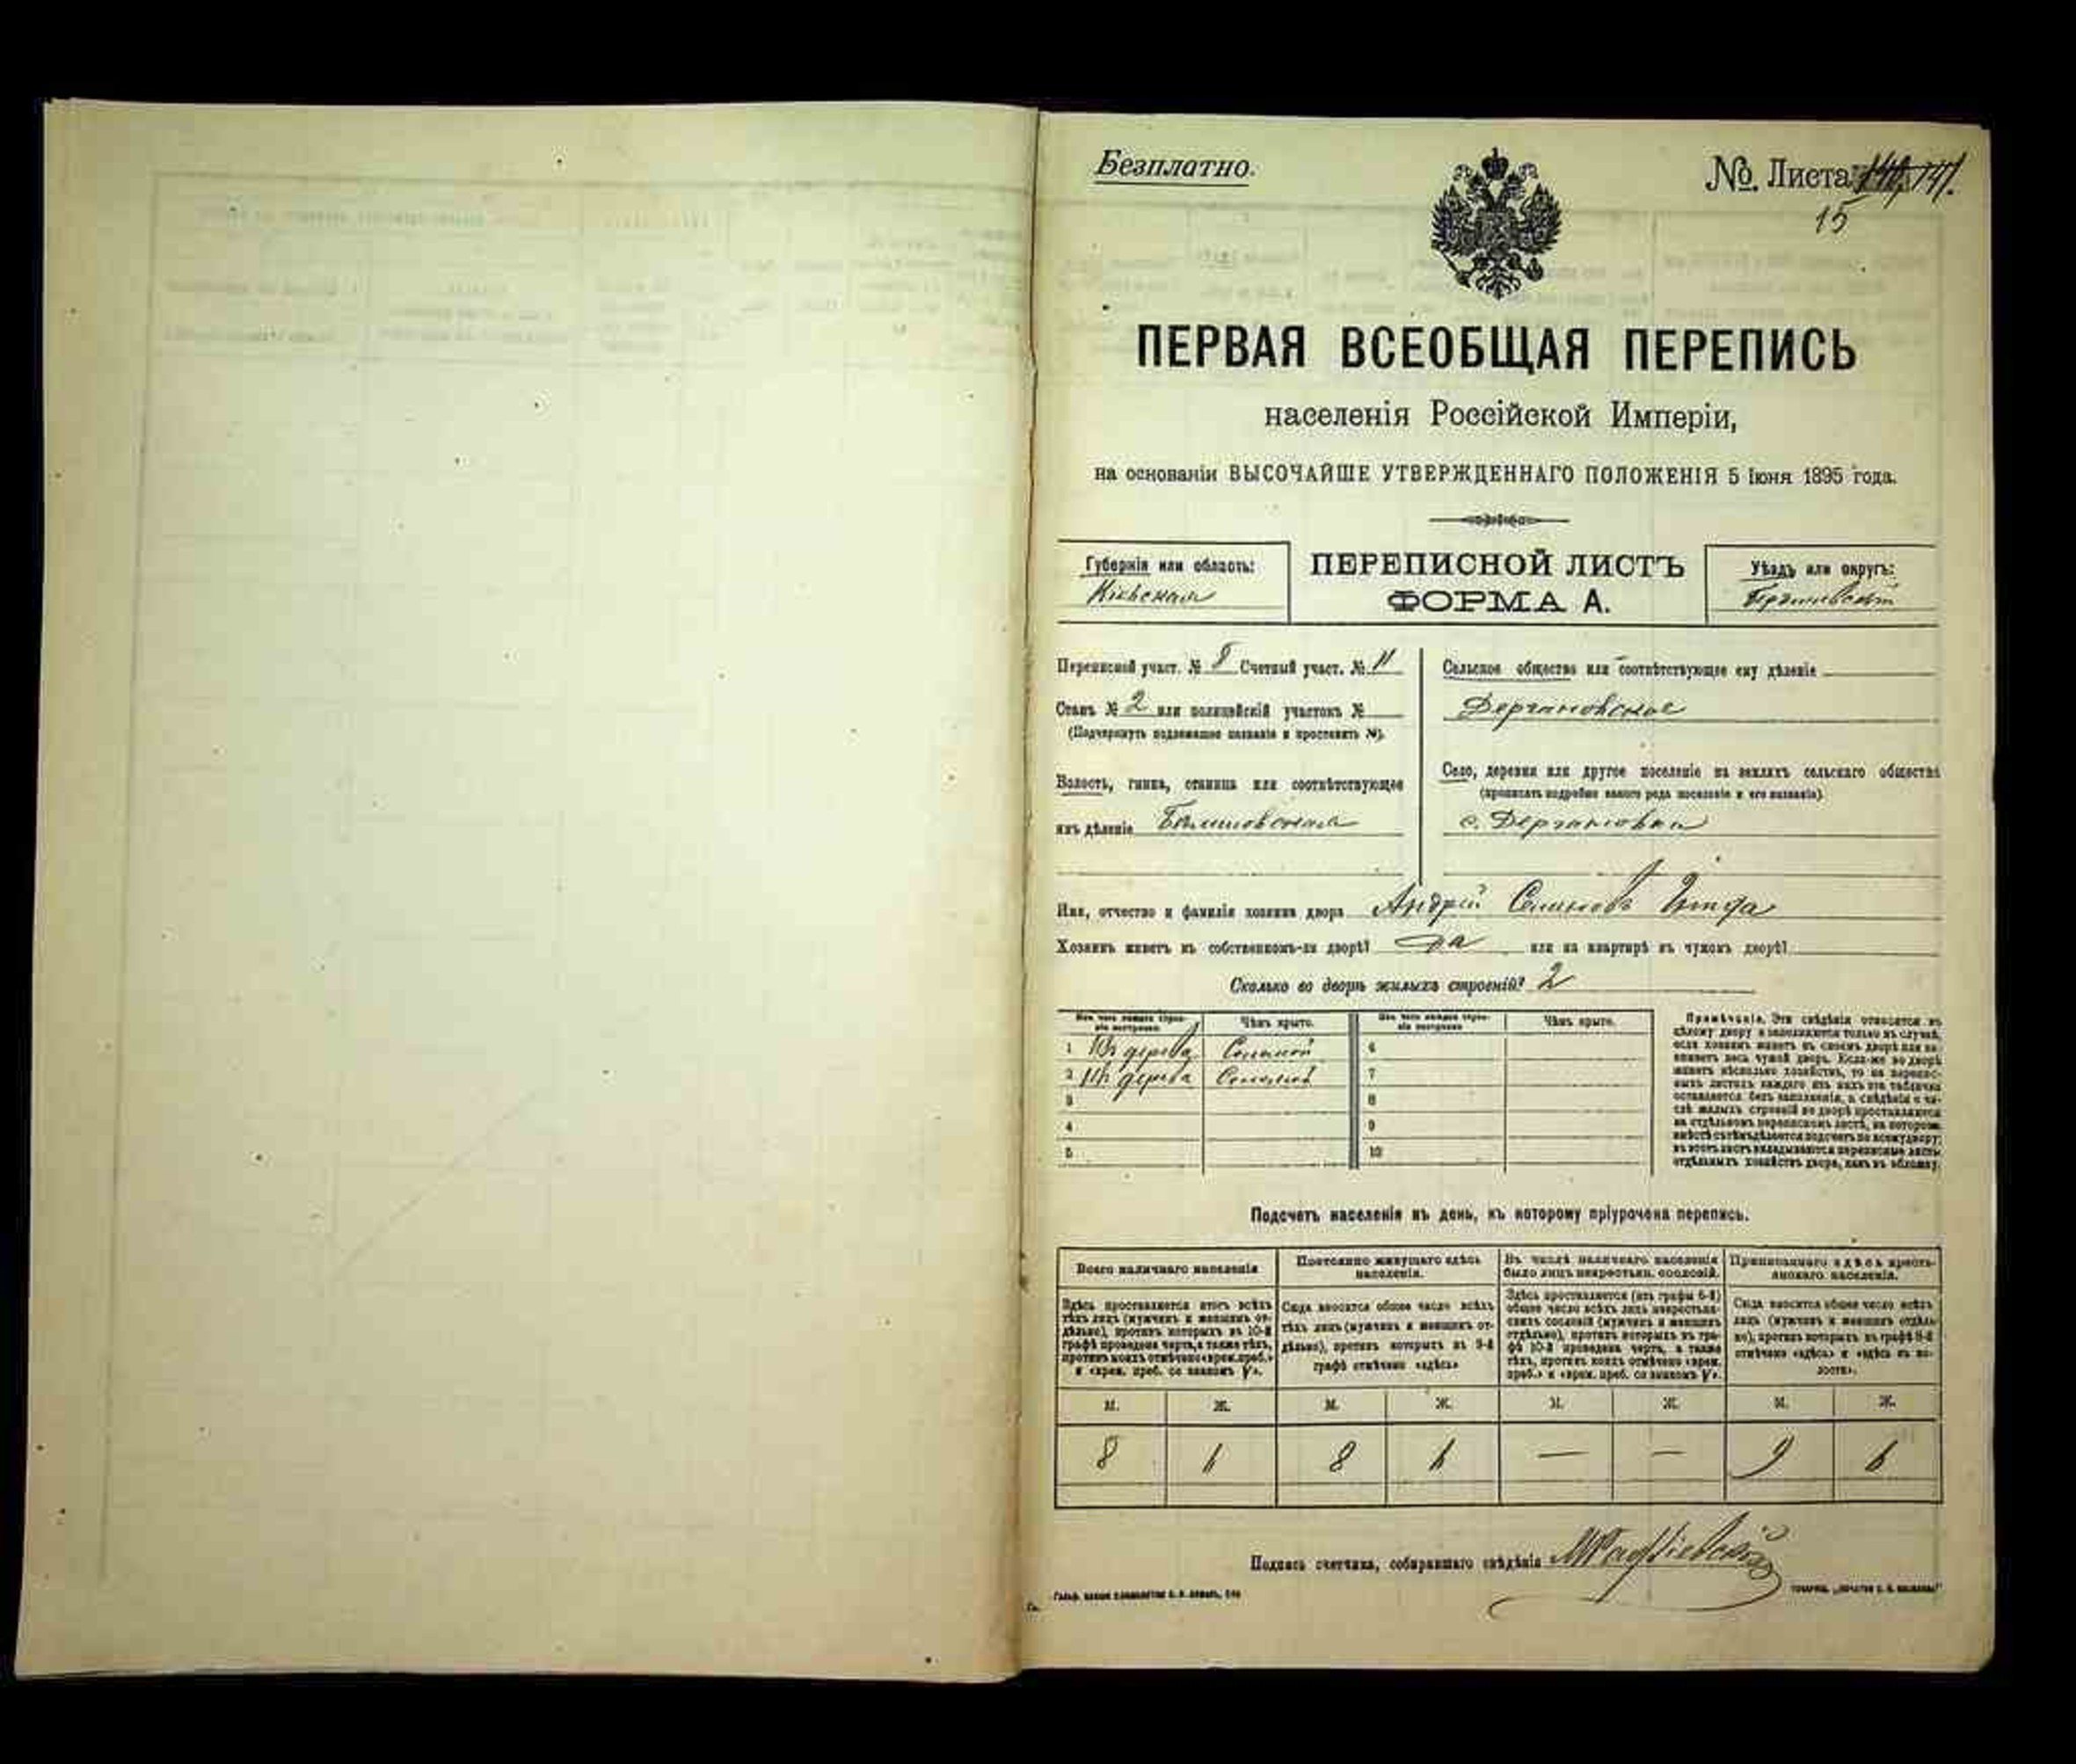 Безплатно.
№ Листа 141.
15
ПЕРВАЯ ВСЕОБЩАЯ ПЕРЕПИСЬ
населенія Россійской Имперіи,
на основаніи ВЫСОЧАЙШЕ УТВЕРЖДЕННАГО ПОЛОЖЕНІЯ 5 Іюня 1895 года.
Губернія или область:
Кіевская
ПЕРЕПИСНОЙ ЛИСТЪ
ФОРМА А.
Уѣздъ или округъ:
Бердичевскій
Переписной участ. № 8 Счетный участ. № 11
Станъ № 2 или полицейскій участокъ №
(Подчеркнуть подлежащее названіе и проставить №).
Волость, гмина, станица или соотвѣтствующее
имъ дѣленіе
Сельское общество или соотвѣтствующее ему дѣленіе
Дергановское
Село, деревня или другое поселеніе на земляхъ сельскаго общества
(прописать подробно какого рода поселеніе и его названіе)
с. Дергановка
Имя, отчество и фамилія хозяина двора Андрій
Хозяинъ живетъ въ собственномъ-ли дворѣ? да или на квартирѣ въ чужомъ дворѣ?
Сколько во дворѣ жилыхъ строеній? 2
Изъ чего каждое строеніе построено.
Чѣмъ крыто.
Изъ чего каждое строеніе построено
Чѣмъ крыто.
1 Изъ дерева Соломой
2 Изъ дерева Соломой
3
4
5
6
7
8
9
10
Примѣчаніе. Эти свѣдѣнія относятся къ
цѣлому двору и заполняются только въ случаѣ,
если хозяинъ живетъ въ своемъ дворѣ или на-
нимаетъ весь чужой дворъ. Если-же во дворѣ
живетъ нѣсколько хозяйствъ, то на перепис-
ныхъ листахъ каждаго изъ нихъ эта табличка
оставляется безъ заполненія, а свѣдѣнія о чи-
слѣ жилыхъ строеній во дворѣ проставляются
на отдѣльномъ переписномъ листѣ, на которомъ
вмѣстѣ съ тѣмъ дѣлается подсчетъ по всему двору;
въ этотъ листъ вкладываются переписные листы
отдѣльныхъ хозяйствъ двора, какъ въ обложку.
Подсчетъ населенія въ день, къ которому пріурочена перепись.
Всего наличнаго населенія
Здѣсь проставляется итогъ всѣхъ
тѣхъ лицъ (мужчинъ и женщинъ от-
дѣльно), противъ которыхъ въ 10-й
графѣ проведена черта, а также тѣхъ,
противъ коихъ отмѣчено «врем. преб.»
и «врем. преб. со знакомъ V».
Постоянно живущаго здѣсь
населенія.
Сюда вносится общее число всѣхъ
тѣхъ лицъ (мужчинъ и женщинъ от-
дѣльно), противъ которыхъ въ 9-й
графѣ отмѣчено «здѣсь»
Въ числѣ наличнаго населенія
было лицъ некрестьян. сословій.
Здѣсь проставляется (изъ графы 6-й)
общее число всѣхъ лицъ некрестьян-
скихъ сословій (мужчинъ и женщинъ
отдѣльно), противъ которыхъ въ гра-
фѣ 10-й проведена черта, а также
тѣхъ, противъ коихъ отмѣчено «врем.
преб.» и «врем. преб. со знакомъ V».
Приписаннаго здѣсь кресть-
янскаго населенія.
Сюда вносится общее число всѣхъ
лицъ (мужчинъ и женщинъ отдѣль-
но), противъ которыхъ въ графѣ 8-й
отмѣчено «здѣсь» и «здѣсь въ во-
лости».
М. Ж. М. Ж. М. Ж. М. Ж.
8 6 8 6 — — 9 6
Подпись счетчика, собиравшаго свѣдѣнія